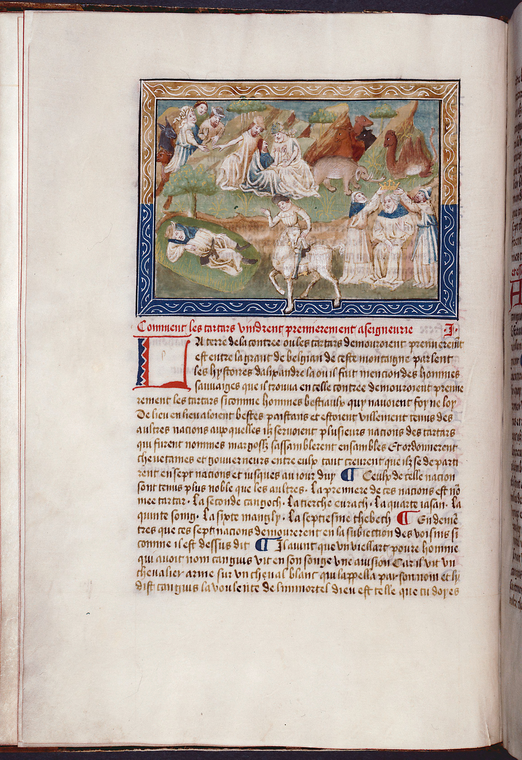 Comment les tartars vindrent premierement a seigneurie
La terre de la contree ou les tartars demouroient premierement
est entre la grant de belgian de ceste montaigne parlent
les hystoires dalixandre la ou il fait mencion des hommes
sauvaiges que il trouva en celle contree demouroient premie
rement les tartars si comme hommes bestiaulx qui navoient foy ne loy
De lieu en lieu aloient bestes paissans et estoient villement tenus des
aultres nacions auxquelles ilz servoient plusieurs nacions des tartars
qui furent nommes sassamblerent ensambles Et ordonnerent
chevetaines et gouverneurs entre eulx tant creurent que ilz se departi
rent en sept nacions et jusques au jour duy Ceulx de celle nacion
sont tenus plus noble que les aultres. La premiere de ces nacions est no
mee tartar. La seconde tangoth. La tierce eurach. La quarte iasan. La
quinte sonig. La sixte mangly. La septiesme thebeth En deme
tres que ces sept nacions demouroient en la subjection des voisins si
comme il est dessus dit Il avint que un viellart poure homme
qui avoit nom canguis vit en son songe une avision Car il vit un
chevalier arme sur un cheval blanc qui lappella par son nom et ly
dist canguis la voulente de limmortel dieu est telle que tu doyes